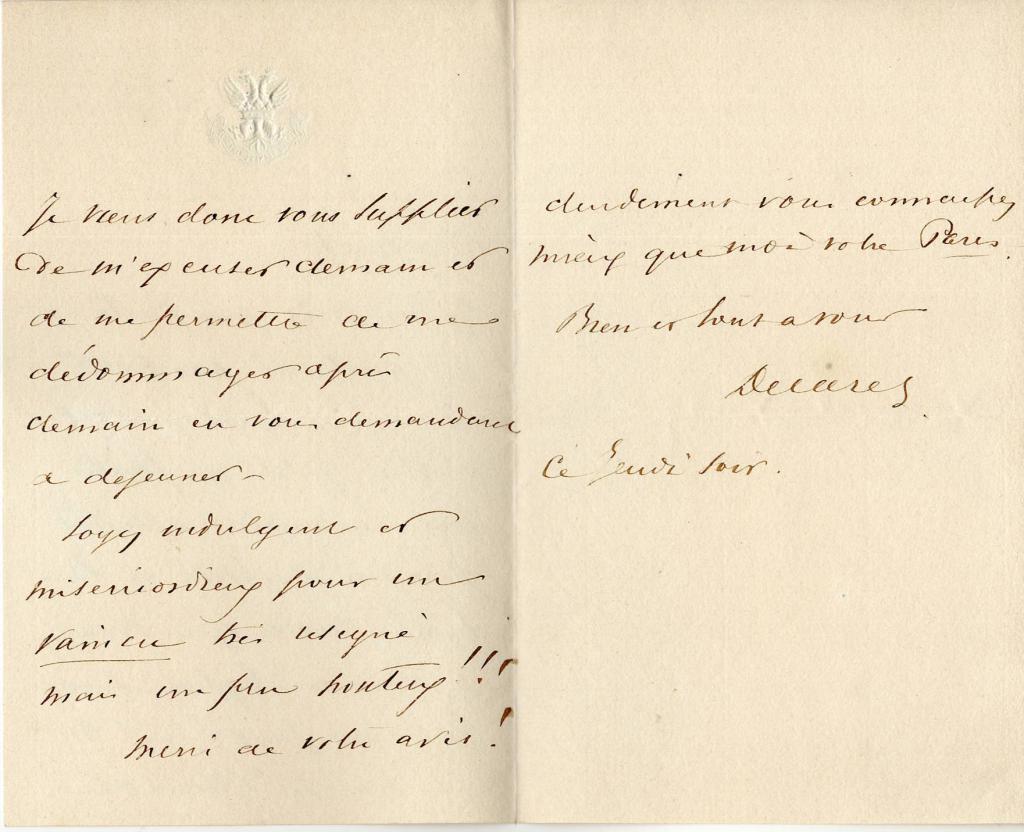 Je viens donc vous supplier
de m'excuser demain et
de me permettre de me
dédommager après
demain en vous demandant
a dejeuner –
Soyez indulgent et
misericordieux pour un
vaincu très resigné
mais un peu honteux !!!
Merci de votre avis !
decidement vous connaissez
mieux que moi votre Paris.
Bien et tout a vous
Decazes
Ce Jeudi soir.